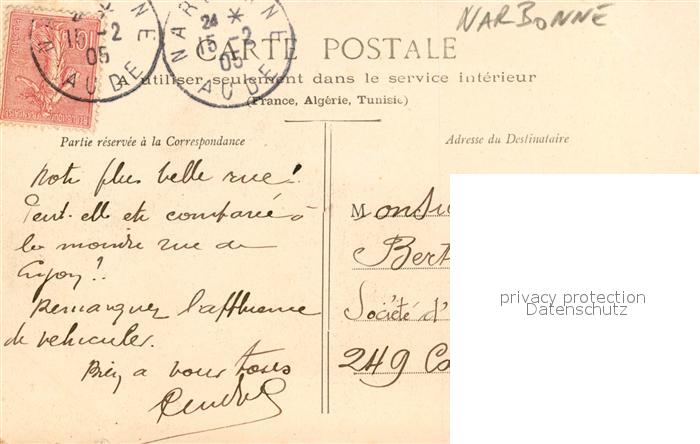 NARBONNE
NARBONNE 24 * 15 -2 05 AUDE
15 -2 05 AUDE
CARTE POSTALE
A utiliser seulement dans le service intérieur
(France, Algérie, Tunisie)
Partie réservée à la Correspondance
Adresse du Destinataire
Notre plus belle rue!
Peut-elle etre comparée à
la moindre rue de
!!
Remarquez l'affluence
de vehicules.
Bien a vous tous
Monsie
Bert
Société d'
249 Co
privacy protection
Datenschutz